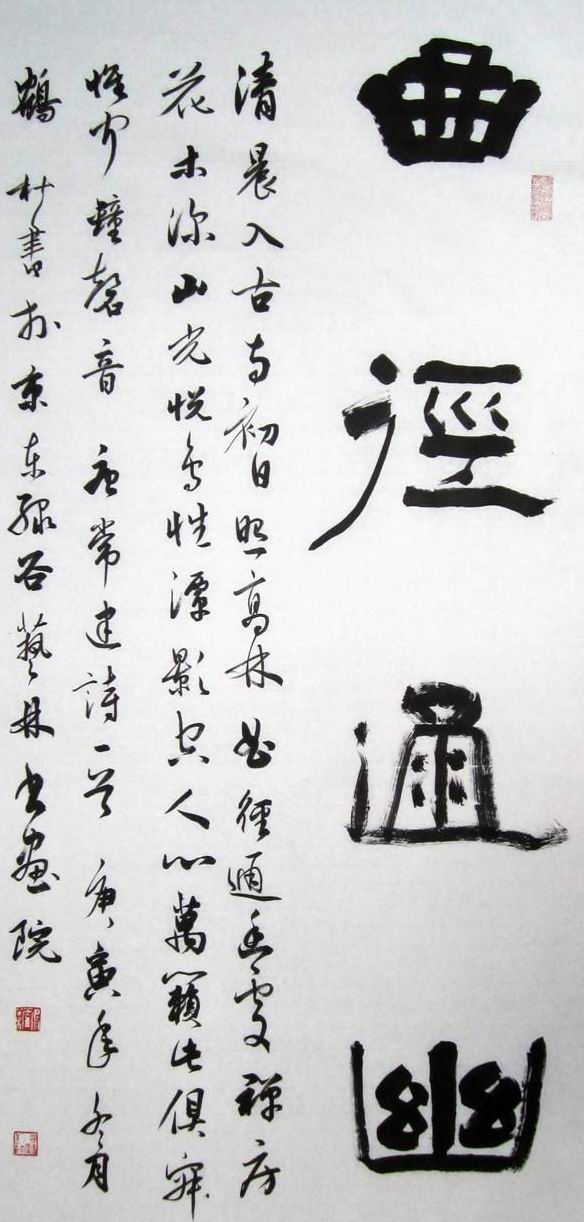 曲徑通幽
清晨入古寺初日照高林曲徑通幽處禪房
花木深山光悅鳥性潭影空人心萬籟此俱寂
惟聞鐘磬音 唐常建詩一首 庚寅年冬月
鶴村書於京東綠谷藝林書畫院